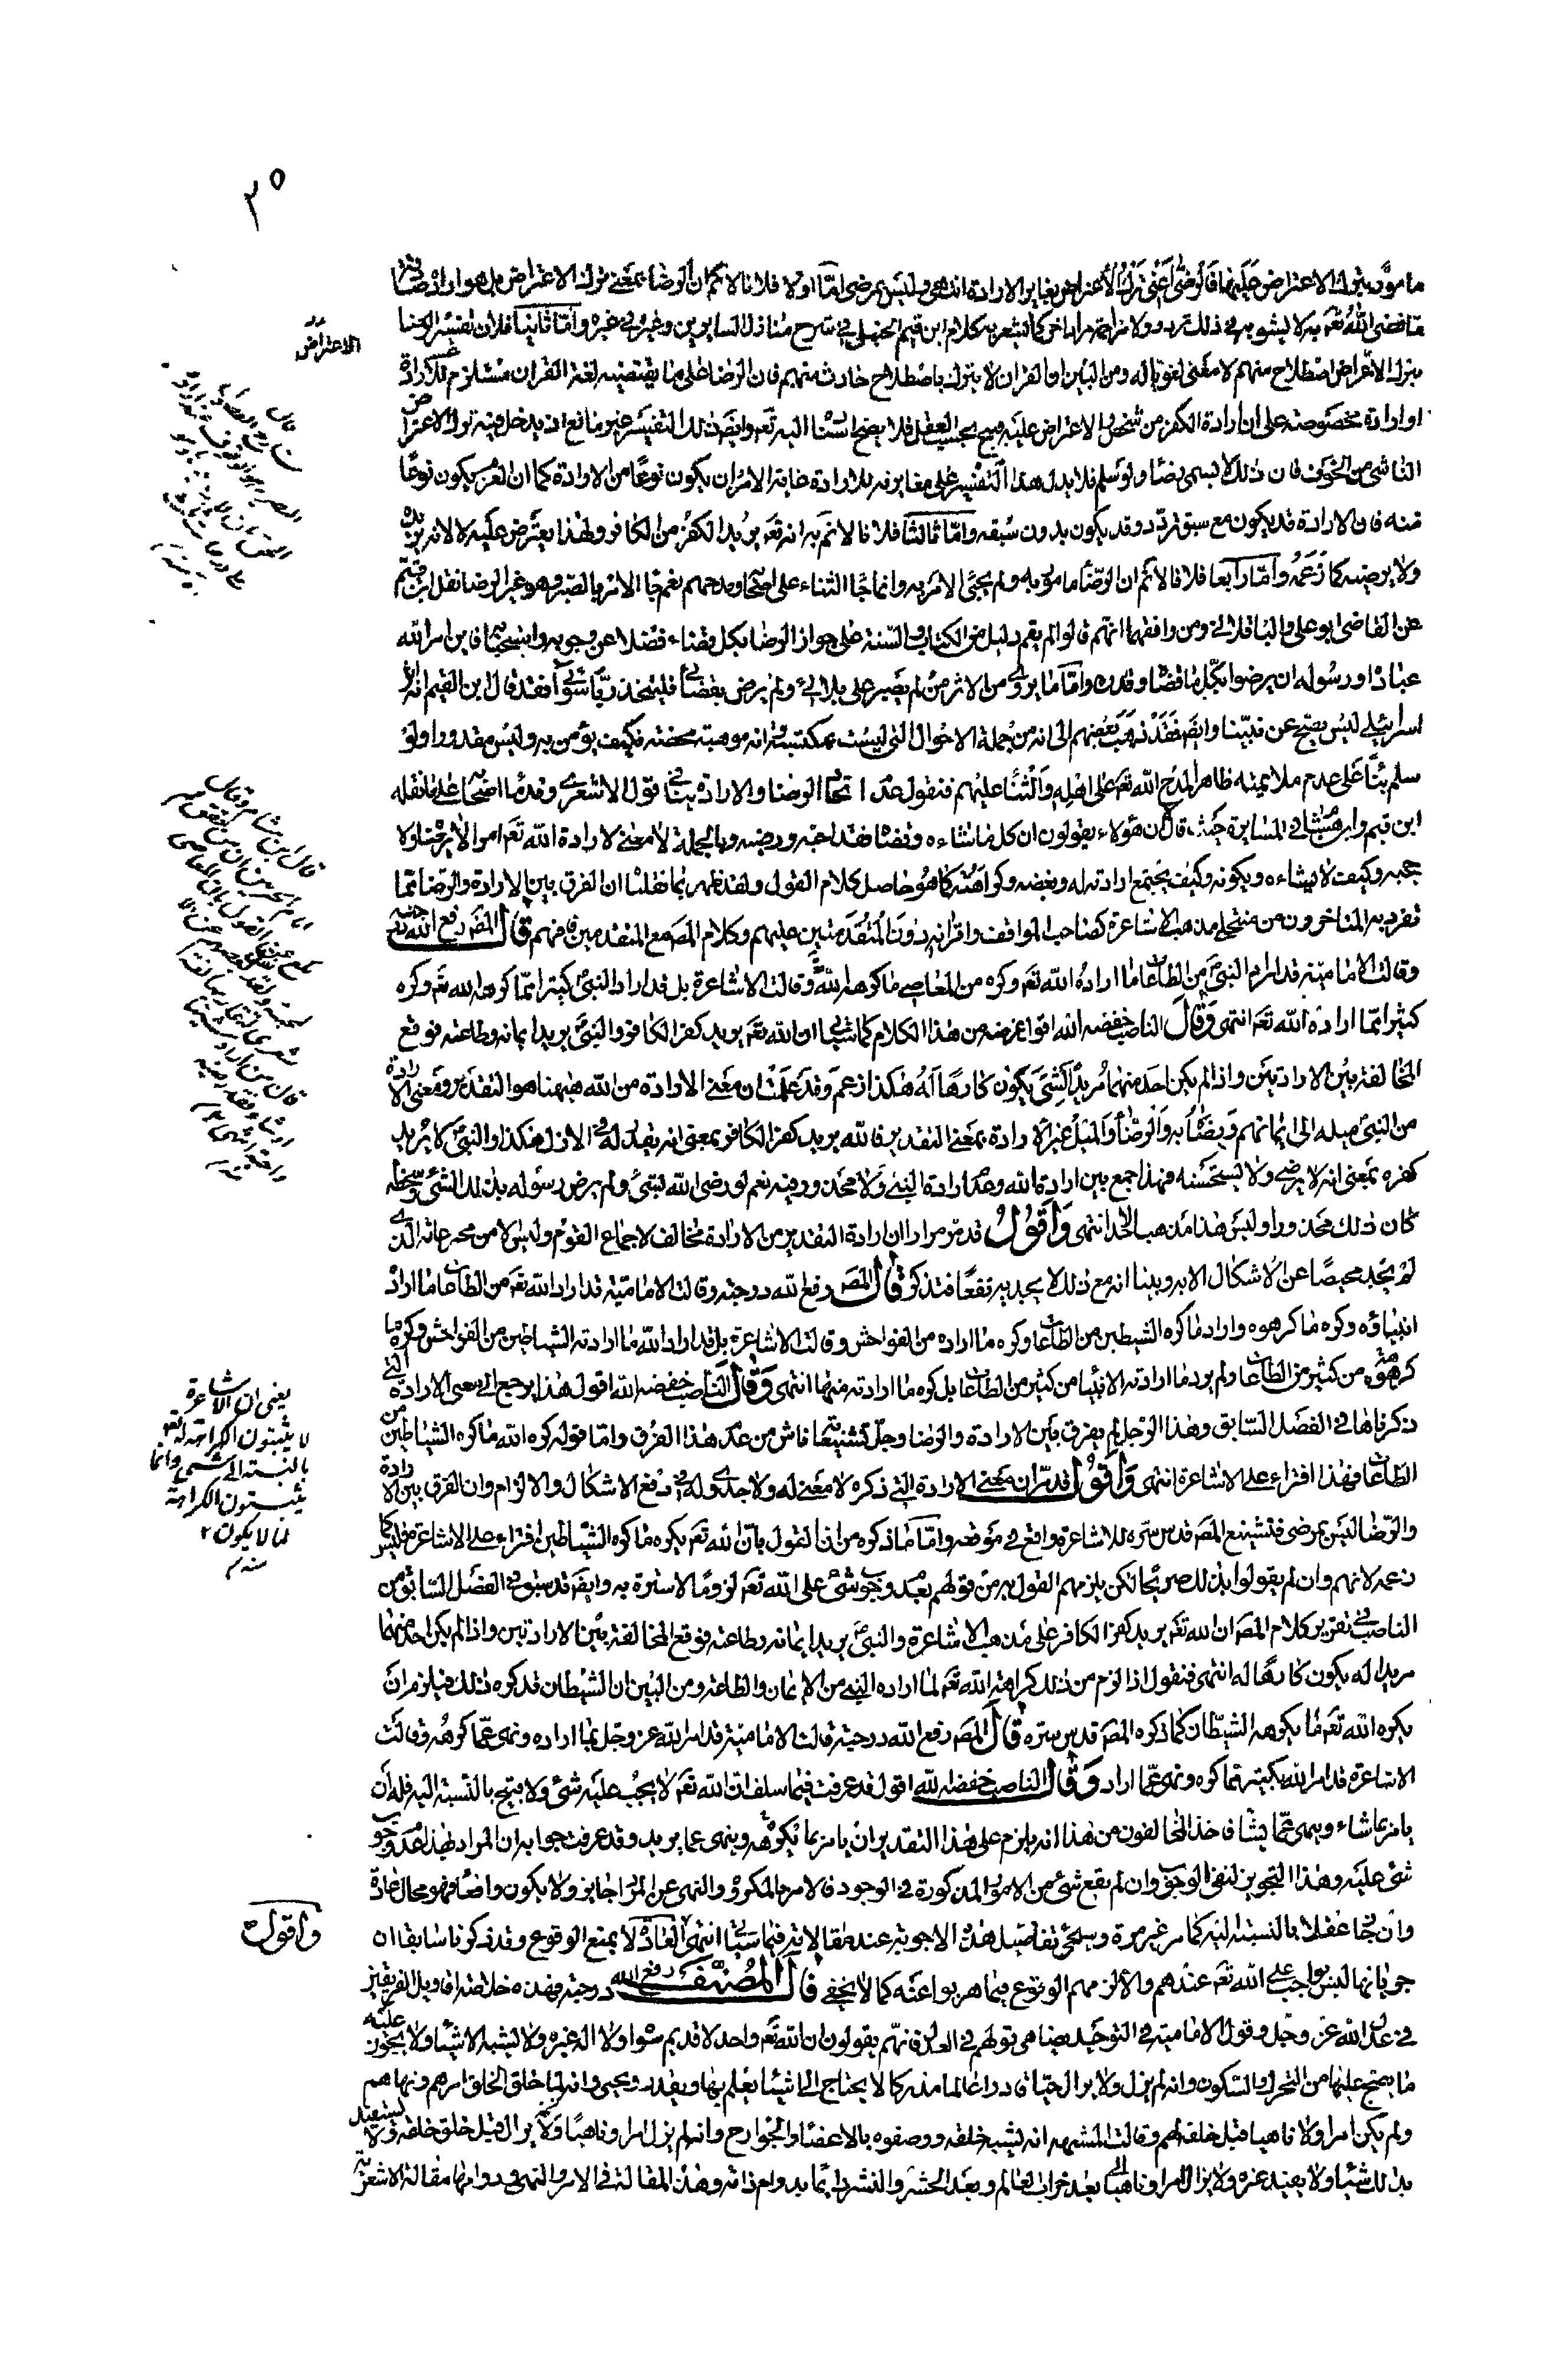 ٣٥
مأمور بترك الاعتراض عليها فالرضى أعنى ترك الأعتراض يغاير الارادة انتهى وليس بمرضى امّا اولا فلانا لانم ان الرضا بمعنى ترك الاعتراض بل هو ارادة
ما قضى الله تعه به لا يشوبه في ذلك تردد ولا مزاحمة مراد اخر كما يشعر به كلام ابن قيم الحنبلى في شرح منازل السايرين وغيره في غيره وامّا ثانيا فلان تفسير الرضا
بترك الاعتراض اصطلاح منهم لا معنى لغويا له ومن البيّن ان القران لا ينزل باصطلاح حادث منهم فان الرضا على ما يقتضيه لغة القران مستلزم للارادة
او ارادة مخصوصة على ان ارادة الكفر من شخص والاعتراض عليه قبيح بحسب العقل فلا يصح اسنا اليه تعه وايضه ذلك التفسير غير مانع اذ يدخل فيه ترك الاعتراض
الناشى من الخوف فان ذلك لا يسمى رضا ولو سلم فلا يدل هذا التفسير على مغايرته للارادة غاية الامر ان يكون نوعًا من الارادة كما ان العزم يكون نوعًا
منه فان الارادة قد يكون مع سبق تردد وقد يكون بدون سبقه وامّا ثالثا فلانا لانم به انه تعه يريد الكفر من الكافر ولهذا يعترض عليه لا لانه يريده
ولا يرضيه كما زعمه وامّا رابعا فلانا لانم ان الرضا مامور به ولم يجئ الامر به وانما جا الثناء على اصحابه ومدحهم نعم جا الامر بالصبر وهو غير الرضا نقل ابن قيم
عن القاضى ابو على والباقلانى ومن وافقهما انهم قالوا لم يقم دليل من الكتاب والسنة على جواز الرضا بكل قضاء فضلا عن وجوبه واستحبابه فاين امر الله
عباده او رسوله ان يرضوا بكل ما قضا وقدره وامّا ما يروى من الاثر من لم يصبر على بلائى ولم يرض بقضائى فليتخذ ربّا سوائى فقد قال ابن القيم انه اثر
اسرائيلى ليس يصح عن نبيّنا وايضه فقد ذهب بعضهم الى انه من جملة الاحوال التى ليست بمكتسبة وانه موهبة محضة فكيف يؤمر به وليس مقدورا ولو
سلم بنا على عدم ملايمته ظاهر المدح الله تعه على اهله والثنا عليهم فنقول عدا اتحاد الرضا والارادة يناى قول الاشعرى وقدما اصحابه على ما نقله
ابن قيم وابن همام في المسايرة حيث قالا ان هؤلاء يقولون ان كل ما شاءه وقضا فقد احبه ورضيه وبالجملة لا معنى لارادة الله تعه امرا لا يرضا ولا
يحبه وكيف لا يشاءه ويكونه وكيف يجتمع ارادته له وبغضه وكراهته كما هو حاصل كلام القول ولقد ظهر بما نقلنا ان الفرق بين الارادة والرضا مما
تفرد به المتاخرون من منتحلى مذهب الاشاعرة كصاحب المواقف واقرانه دون المتقدمين عليهم وكلام المصه مع المتقدمين منهم قال المصه رفع الله درجته
وقالت الامامية قد اراد النبى من الطاعات ما اراده الله تعه وكره من المعاصى ما كرهه الله وقالت الاشاعرة بل قد اراد النبى كثيرا ممّا كرهه الله تعه وكره
كثيرا مما اراده الله تعه انتهى وقال الناصب خفضه الله اقول غرضه من هذا الكلام كما سيأتى ان الله تعه يريد كفر الكافر والنبى يريد ايمانه وطاعته فوقع
المخالفة بين الارادتين واذا لم يكن احد منهما مريدًا لشئ يكون كارها له هكذا زعم وقد علمت ان معنى الارادة من الله هيهنا هو التقدير ومعنى الارادة
من النبى ميله الى ايمانهم ورضاه به والرضا والميل غير الارادة بمعنى التقدير فالله يريد كفر الكافر بمعنى انه يقدر له في الازل هكذا والنبى لا يريد
كفره بمعنى انه لا يرضى ولا يستحسنه فهذا جمع بين ارادة الله وعدم ارادة النبى ولا محذور فيه نعم لو رضى الله لشئ ولم يرض رسوله بذلك الشئ وسخطه
كان ذلك محذورا وليس هذا مذهب لاحد انتهى وأقول قد مرّ مرارا ان ارادة التقدير من الارادة مخالف لاجماع القوم وليس الا من مخترعاته الذى
لم يجد محيصًا عن الاشكال الا به وبينا انه مع ذلك لا يجديه نفعًا فتذكر قال المصه رفع الله درجته وقالت الامامية قد اراد الله تعه من الطاعات ما اراد
انبياؤه وكره ما كرهوه واراد ما كره الشيطين من الطاعات وكره ما اراده من الفواحش وقالت الاشاعرة بل قد اراد الله ما ارادته الشياطين من الفواحش وكره ما
كرهوه من كثير من الطاعات ولم يرد ما ارادته الانبيا من كثير من الطاعات بل كره ما ارادته منها انتهى وقال الناصب خفضه الله اقول هذا يرجع الى معنى الارادة التى
ذكرناها في الفصل السابق وهذا الرجل لم يفرق بين الارادة والرضا وجلّ تشنيعاته ناش من عدم هذا الفرق وامّا قوله كره الله ما كره الشياطين من
الطاعات فهذا افتراء على الاشاعرة انتهى وأقول قد مرّ ان معنى الارادة التى ذكره لا معنى له ولا جدوى له في دفع الاشكال والالزام وان الفرق بين الارادة
والرضا ليس بمرضى فتشنيع المصه قدس سره للاشاعرة واقع في موضعه وامّا ما ذكره من ان القول بان الله تعه يكره ما كره الشياطين افتراء على الاشاعرة فليس كما
زعمه لانهم وان لم يقولوا بذلك صريحا لكن يلزمهم القول به من قولهم بعدم وجوب شئ على الله تعه لزوما لا سترة به وايضه قد سبق في الفصل السابق من
الناصب في تقرير كلام المصه ان الله تعه يريد كفر الكافر على مذهب الاشاعرة والنبى يريد ايمانه وطاعته فوقع المخالفة بين الارادتين واذا لم يكن احد منهما
مريدا له يكون كارها له انتهى فنقول اذا لزم من ذلك كراهة الله تعه لما اراده النبى من الايمان والطاعة ومن البيّن ان الشيطان قد كره ذلك فيلزم ان
يكره الله تعه ما يكرهه الشيطان كما ذكره المصه قدس سره قال المصه رفع الله درجته قالت الامامية قد امر الله عز وجل بما اراده ونهى عما كرهه وقالت
الاشاعرة قد امر الله بكثير مما كره ونهى عما اراد وقال الناصب خفضه الله اقول قد عرفت فيما سلف ان الله تعه لا يجب عليه شئ ولا قبيح بالنسبة اليه فله ان
يامر بما شاء وينهى عما يشا فاخذ المخالفون من هذا انه يلزم على هذا التقدير ان يامر بما يكرهه وينهى عما يريد وقد عرفت جوابه ان المراد بهذا عدم وجوب
شئ عليه وهذا التجويز لنفى الوجوب وان لم يقع شئ من الامور المذكورة في الوجود فالامر بالمكروه والنهى عن المراد جايز ولا يكون واقعا فهو محال عادة
وان جا عقلا بالنسبة اليه كما مر غير مرة وسيجئ تفاصيل هذه الاجوبة عند مقالاته فيما سياتى انتهى العادة لا يمنع الوقوع وقد ذكرنا سابقا ان
جريانها ليس بواجب على الله تعه عندهم والا لزمهم الوقوع فيما هربوا عنه كما لا يخفى قال المُصنّف رفع الله درجته فهذه خلاصة اقاويل الفريقين
في عدل الله عز وجل وقول الامامية في التوحيد يضاهى قولهم في العدل فانهم يقولون ان الله تعه واحد لا قديم سواه ولا اله غيره ولا يشبه الاشيا ولا يجوز عليه
ما يصح عليها من التحرك والسكون وانه لم يزل ولا يزال حيا قادرا عالما مدركا لا يحتاج الى اشيا يعلم بها ويقدر ويحيى وانه لما خلق الخلق امرهم ونهاهم
ولم يكن امرا ولا ناهيا قبل خلقه لهم وقالت المشبهه انه يشبه خلقه ووصفوه بالاعضا والجوارح وانه لم يزل امرا وناهيا ولا يزال قبل خلق خلقه ولا يستفيد
بذلك شيئا ولا يفيد غيره ولا يزال امرا وناهيا الى بعد خراب العالم وبعد الحشر والنشر دايما بدوام ذاته وهذه المقالة في الامر والنهى ودوامها مقالة الاشعرية
الاعتراض
يعنى ان الاشاعرة
لا يثبتون الكراهة لله تعه
بالنسبة الى شئ وانما
يثبتون الكراهة
لما لا يكون
منه
وأقول